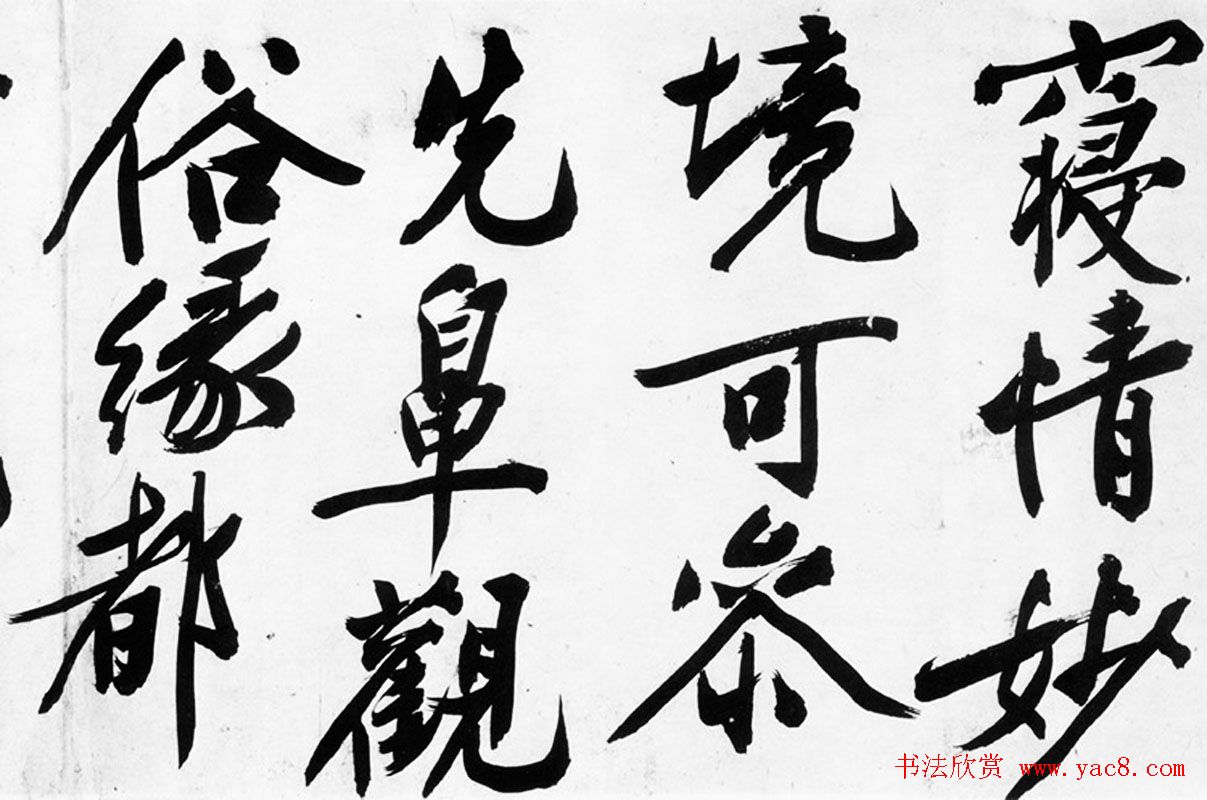 寢情妙
境可參
先鼻觀
俗緣都
书法欣赏 www.yac8.com